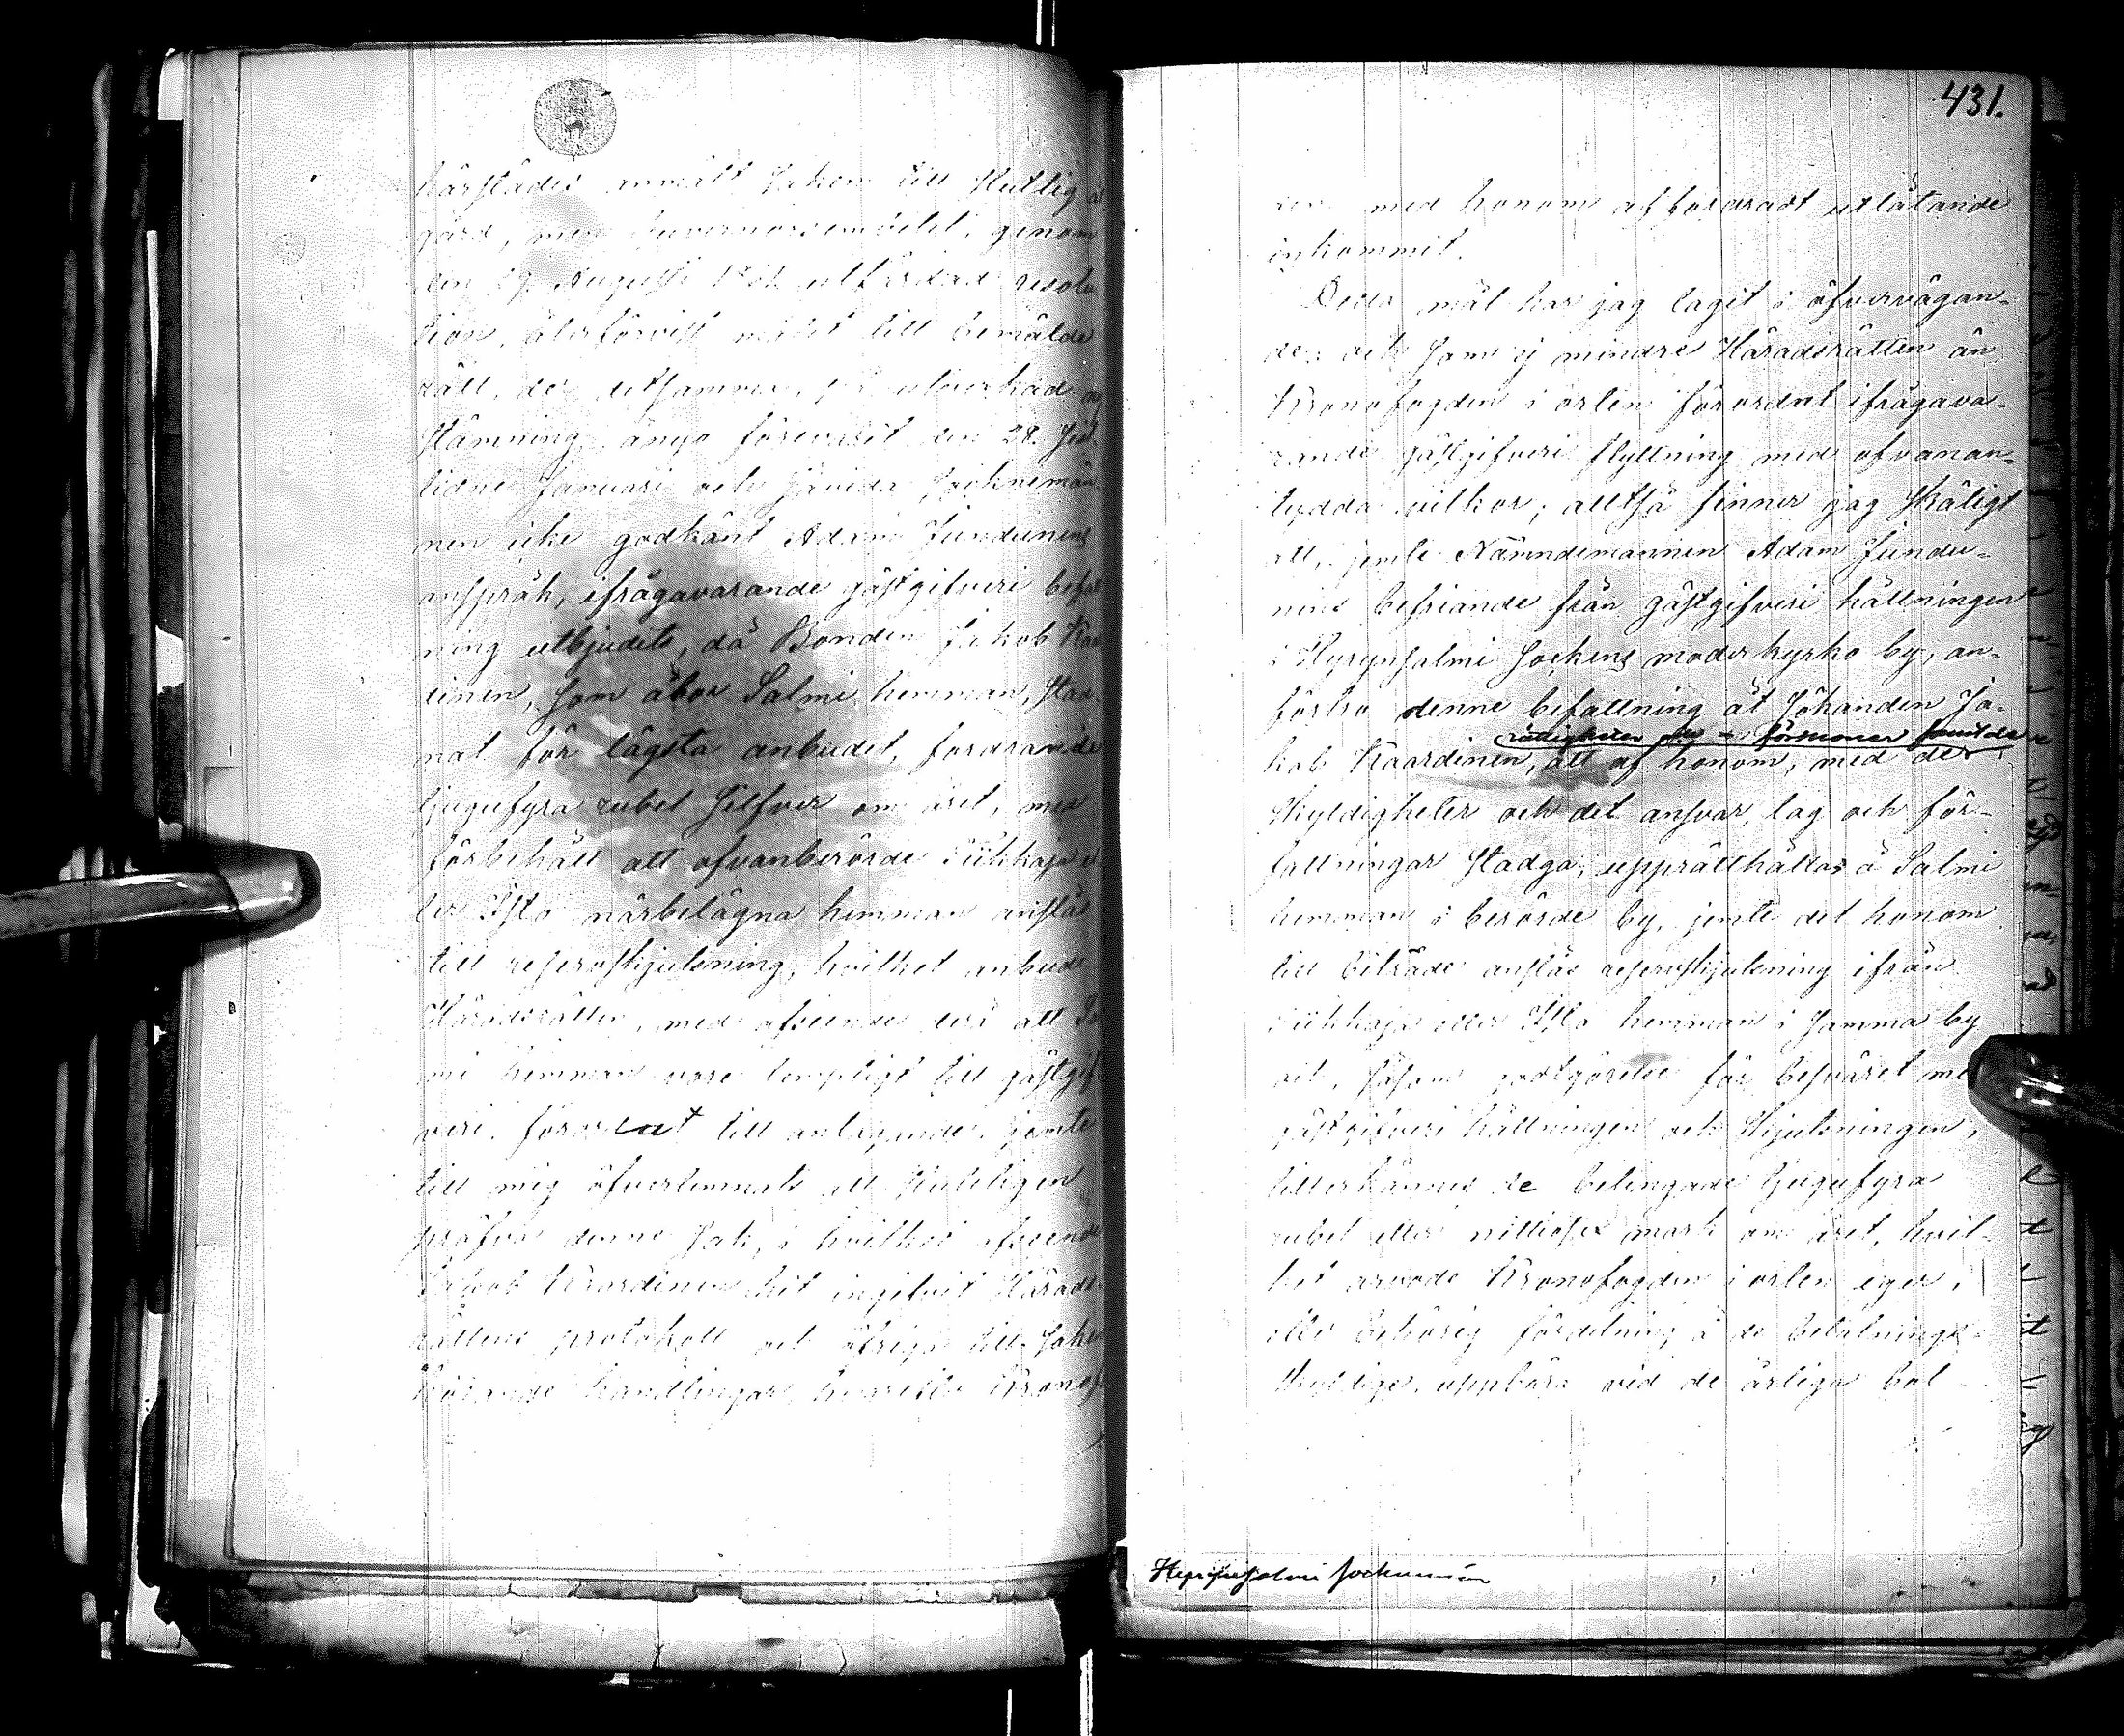 härstädes anmält saken till slutlig
gärd, men Guvernörsembetet, genom
den 29 Augusti utfärdad resolu
tion, återförvist målet till bemälde
rätt, der detsamma, på utverkad
stämning, ånyo förevarit den 28 sist
lidne Januari och jäviga socknemän
nen icke godkänt Adam Junduinens
anspråk, ifrågavarande gästgifveri befat
ning utbjudits, då Bonden Jakob Kaar
dinen, som åbor Salmi hemman, stad
nat för lägsta anbudet, fordrande
tjugufyra rubel silfver om året, med
förbehåll att ofvanberörde
närbelägna hemman anslås
till reservskjutsning, hvilket anbud
Häradsrätten, med afseende derå att Sal
mi hemman vore lämpligt till gästgif
veri, förordat till antagande, jemte
till mig öfverlemnats att slutligen
pröfva denne sak, i hvilket afseende
Jakob Kaardinen hit ingifvit Härads
rättens protokoll och öfriga till saken
hörande handlingar, hvarefter Kronof
431.
den med honom affordradt utlåtande
inkommit.
Detta mål har jag tagit i öfvervägan-
de; och som ej mindre Häradsrätten än
Kronofogden i orten förordat ifrågava-
rande gästgifveri flyttning med ofvanan-
tydda vilkor; alltså finner jag skäligt
att, jemte Nämndemannen Adam Jundui-
nens befriande från gästgifveri hållningen
i Hyrynsalmi sockens moderkyrko by, an-
förtro denne befattning åt sökanden Ja-
rättigheter och förmoner samt de
kob Kaardinen, att af honom, med de
skyldigheter och det ansvar, lag och för-
fattningar stadga, upprätthållas å Salmi
hemman i berörde by, jemte det honom
till biträde anslås reservskjutsning ifrån
eller hemman i samma by
och, såsom godtgörelse för besväret med
gästgifveri hållningen och skjutsningen,
tillerkännes de betingade tjugufyra
rubel eller nittiosex mark om året, hvil-
ket arvode Kronofogden i orten eger,
efter behörig fördelning å de betalnings-
skyldige, uppbära vid de årliga bal
Hyrynsalmi sockenmän